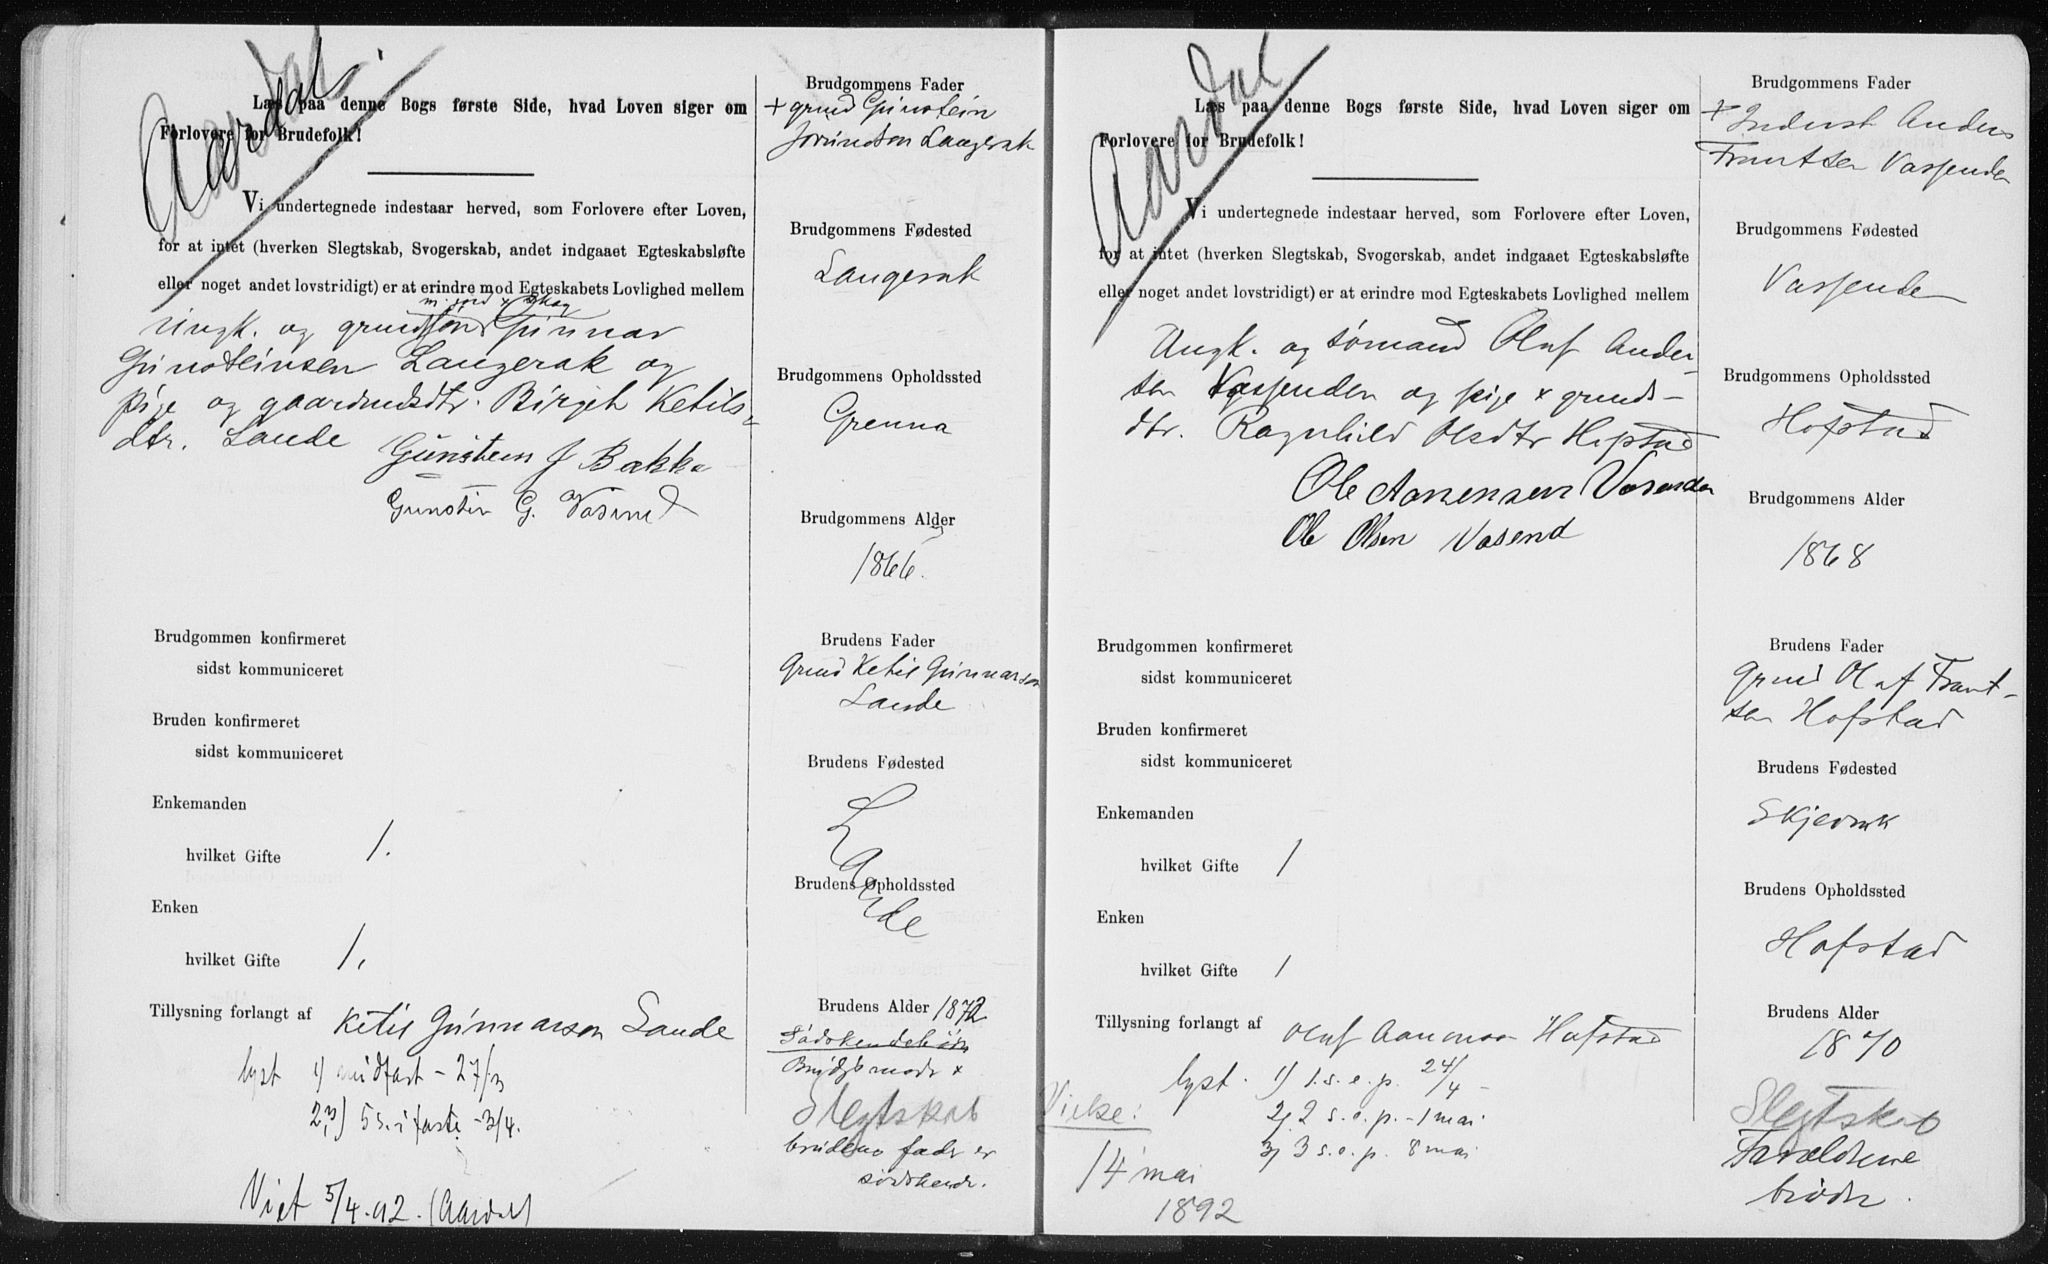 Aardal
Læs paa denne Bogs første Side, hvad Loven siger om
Forlovere for Brudefolk!
Vi undertegnede indestaar herved, som Forlovere efter Loven,
for at intet (hverken Slegtskab, Svogerskab, andet indgaaet Egteskabsløfte
eller noget andet lovstridigt) er at erindre mod Egteskabets Lovlighed mellem
m. jord x skog
Ungk. og Gunnar
Gunsteinsen Langerak og
pige og gaardmdsdtr. Birgit Ketils-
dtr. Lande
Gunstein J Bakke
Gunstein G. Vasend
Brudgommen konfirmeret
sidst kommuniceret
Bruden konfirmeret
sidst kommuniceret
Enkemanden
hvilket Gifte 1.
Enken
hvilket Gifte 1.
Tillysning forlangt af Ketil Gunnarson Lande
lyst 1) midfast - 27/3
2) 5 s. i faste - 3/4.
Viet 5/4.92. (Aardal)
Brudgommens Fader
+ grmd Gunstein
Jorundsen Langerak
Brudgommens Fødested
Langerak
Brudgommens Opholdssted
Grenna
Brudgommens Alder
1866.
Brudens Fader
Grmd Ketil Gunnarson
Lande
Brudens Fødested
Lande
Brudens Opholdssted
Brudens Alder 1872
Sødskendebørn
Brudgs moder x
Slegtskab
brudens fader er
sødskende.
Aardal
Læs paa denne Bogs første Side, hvad Loven siger om
Forlovere for Brudefolk!
Vi undertegnede indestaar herved, som Forlovere efter Loven,
for at intet (hverken Slegtskab, Svogerskab, andet indgaaet Egteskabsløfte
eller noget andet lovstridigt) er at erindre mod Egteskabets Lovlighed mellem
Ungk. og sømand Olaf Ander-
sen Vassenden og pige x grmds-
dtr. Ragnhild Olsdtr Hofstad
Ole Aanensen Vasenden
Ole Olsen Vasend
Brudgommen konfirmeret
sidst kommuniceret
Bruden konfirmeret
sidst kommuniceret
Enkemanden
hvilket Gifte 1
Enken
hvilket Gifte 1
Tillysning forlangt af Olaf Hofstad
lyst. 1) 1. s. e. p. 24/4 -
2) 2 s. e. p. - 1 mai
3) 3 s. e. p. 8 mai
Vielse:
14 mai
1892
Brudgommens Fader
+ Inderst Anders
Frantsen Vassenden
Brudgommens Fødested
Vassenden
Brudgommens Opholdssted
Hofstad
Brudgommens Alder
1868
Brudens Fader
Grmd Olaf Frant-
sen Hofstad
Brudens Fødested
Brudens Opholdssted
Hofstad
Brudens Alder
1870
Slegtskab
Forældrene
brødre.